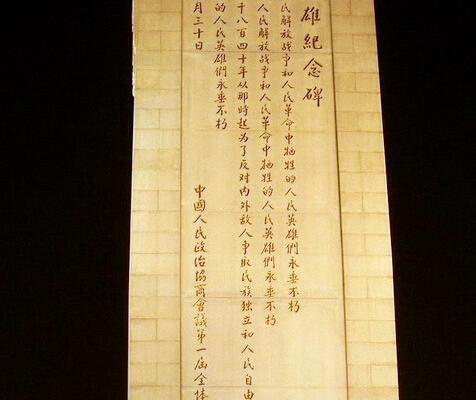 雄紀念碑
民解放战争和人民革命中牺牲的人民英雄們永垂不朽
人民解放战争和人民革命中牺牲的人民英雄們永垂不朽
千八百四十年从那時起为了反对内外敌人争取民族独立和人民自由
的人民英雄們永垂不朽
月三十日 中國人民政治協商會議第一屆全体